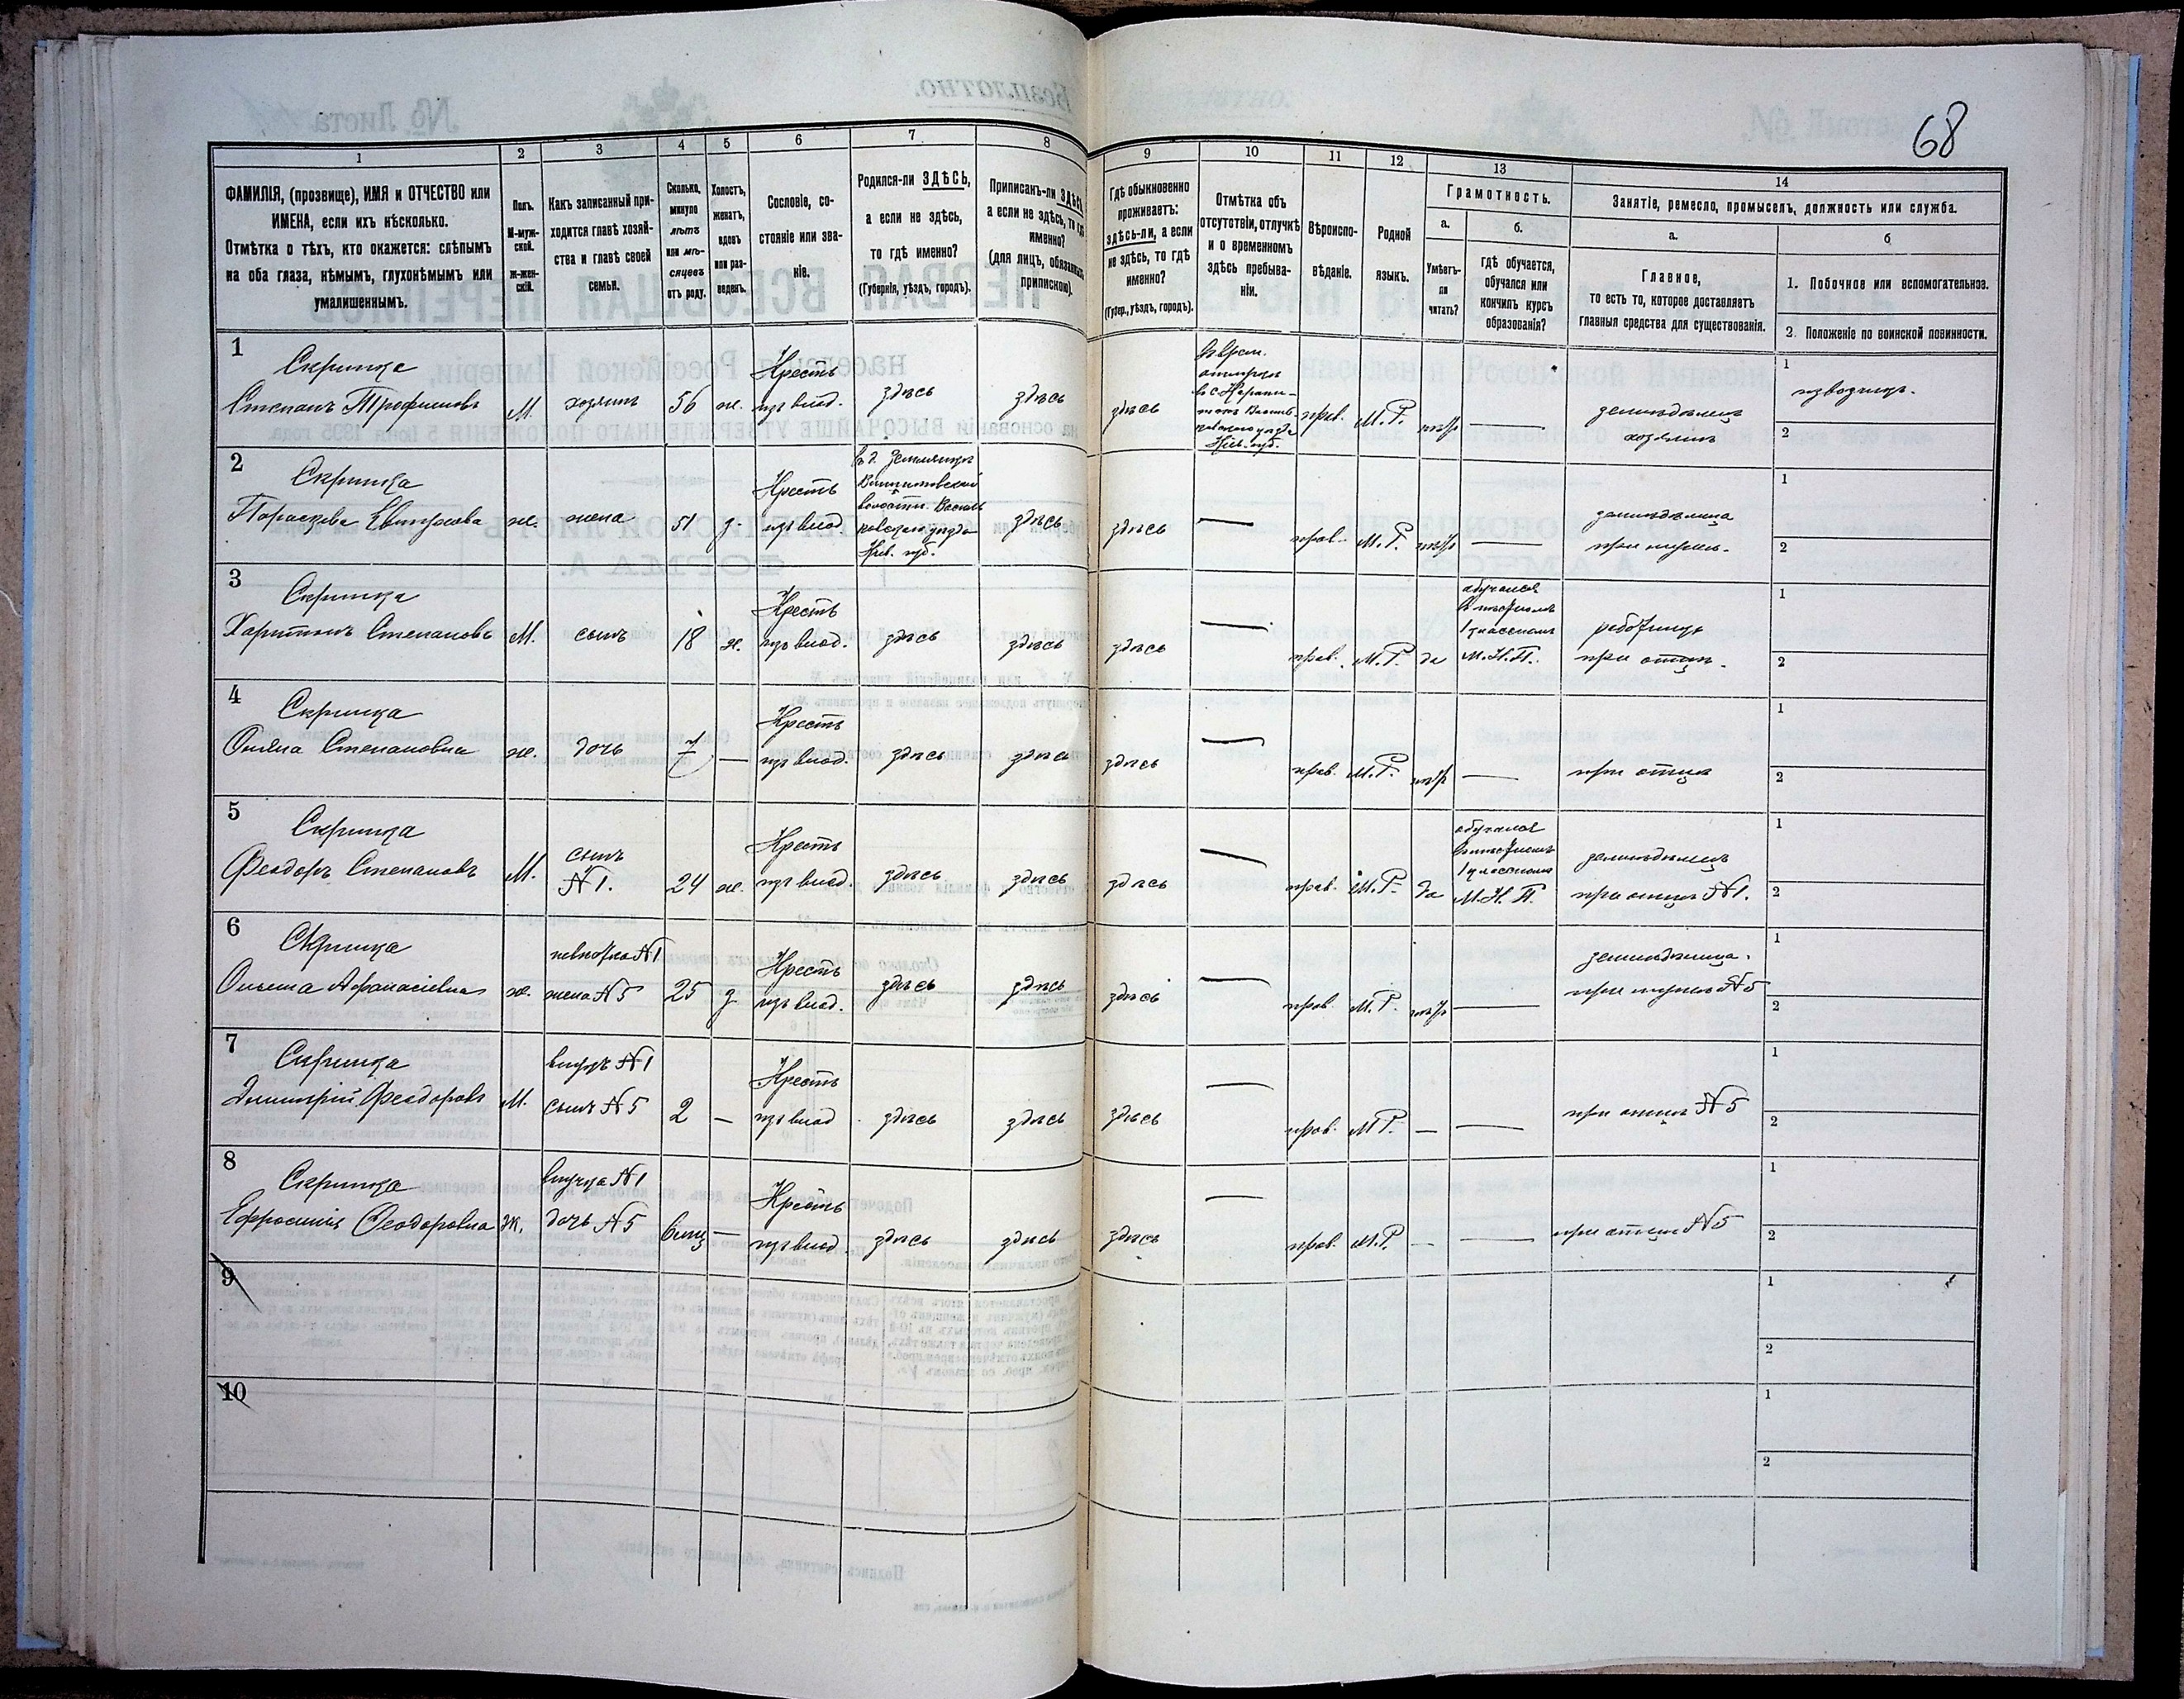 68
1
2
3
4
5
6
7
8
9
10
11
12
13
14
ФАМИЛІЯ, (прозвище), ИМЯ и ОТЧЕСТВО или
ИМЕНА, если ихъ нѣсколько.
Отмѣтка о тѣхъ, кто окажется: слѣпымъ
на оба глаза, нѣмымъ, глухонѣмымъ или
умалишеннымъ.
Полъ.
М-муж-
ской.
Ж-жен-
скій.
Какъ записанный при-
ходится главѣ хозяй-
ства и главѣ своей
семьи.
Сколько,
минуло
лѣтъ
или мѣ-
сяцевъ
отъ роду.
Холостъ,
женатъ,
вдовъ
или раз-
веденъ.
Сословіе, со-
стояніе или зва-
ніе.
Родился-ли ЗДѢСЬ,
а если не здѣсь,
то гдѣ именно?
(Губернія, уѣздъ, городъ).
Приписанъ-ли ЗДѢСЬ
а если не здѣсь, то гдѣ
именно?
(для лицъ, обязанныхъ
припискою).
Гдѣ обыкновенно
проживаетъ:
здѣсь-ли, а если
не здѣсь, то гдѣ
именно?
(Губер., уѣздъ, городъ).
Отмѣтка объ
отсутствіи, отлучкѣ
и о временномъ
здѣсь пребыва-
ніи.
Вѣроиспо-
вѣданіе.
Родной
языкъ.
Грамотность.
а.
Умѣетъ-
ли
читать?
б.
гдѣ обучается,
обучался или
кончилъ курсъ
образованія?
Занятіе, ремесло, промыселъ, должность или служба.
а.
Главное,
то есть то, которое доставляетъ
главныя средства для существованія.
б
1. Побочное или вспомогательное.
2. Положеніе по воинской повинности.
1
Скрипка
Степанъ Трофимовъ М. хозяинъ 56 ж. Крестъ изъ влад. здѣсь здѣсь здѣсь
прав. М.Р. нѣтъ — земледѣлецъ
хозяинъ
1 извозчикъ.
2
2
Скрипка
Параскева ж. жена 51 з. Крестъ изъ влад.
волости Василь
ковскаго уѣзда
Кіев. губ.
здѣсь здѣсь — прав. М.Р. нѣтъ — земледѣлица
при мужѣ.
1
2
3
Скрипка
Харитонъ Степановъ М. сынъ 18 ж. Крестъ изъ влад. здѣсь здѣсь здѣсь — прав. М.Р. да
обучался
1 классномъ
М.Н.П.
работникъ
при отцѣ.
1
2
4
Скрипка
Степановна ж. дочь 7 — Крестъ изъ влад. здѣсь здѣсь здѣсь — прав. М.Р. нѣтъ — при отцѣ
1
2
5
Скрипка
Феодоръ Степановъ М. сынъ №1. 24 ж. Крестъ изъ влад. здѣсь здѣсь здѣсь — прав. М.Р. да
обучался
1 классномъ
М.Н.П.
земледѣлецъ
при отцѣ №1.
1
2
6
Скрипка
Афанасіевна ж. невѣстка №1 жена №5 25 з. Крестъ изъ влад. здѣсь здѣсь здѣсь — прав. М.Р. нѣтъ — земледѣлица.
при мужѣ №5
1
2
7
Скрипка
Димитрій Феодоровъ М. внукъ №1 сынъ №5 2 — Крестъ изъ влад здѣсь здѣсь здѣсь — прав. М.Р. — — при отцѣ №5
1
2
8
Скрипка
Ефросинія Феодоровна ж. внучка №1 дочь №5 6 мѣс — Крестъ изъ влад. здѣсь здѣсь здѣсь — прав. М.Р. — — при отцѣ №5
1
2
9
1
2
10
1
2